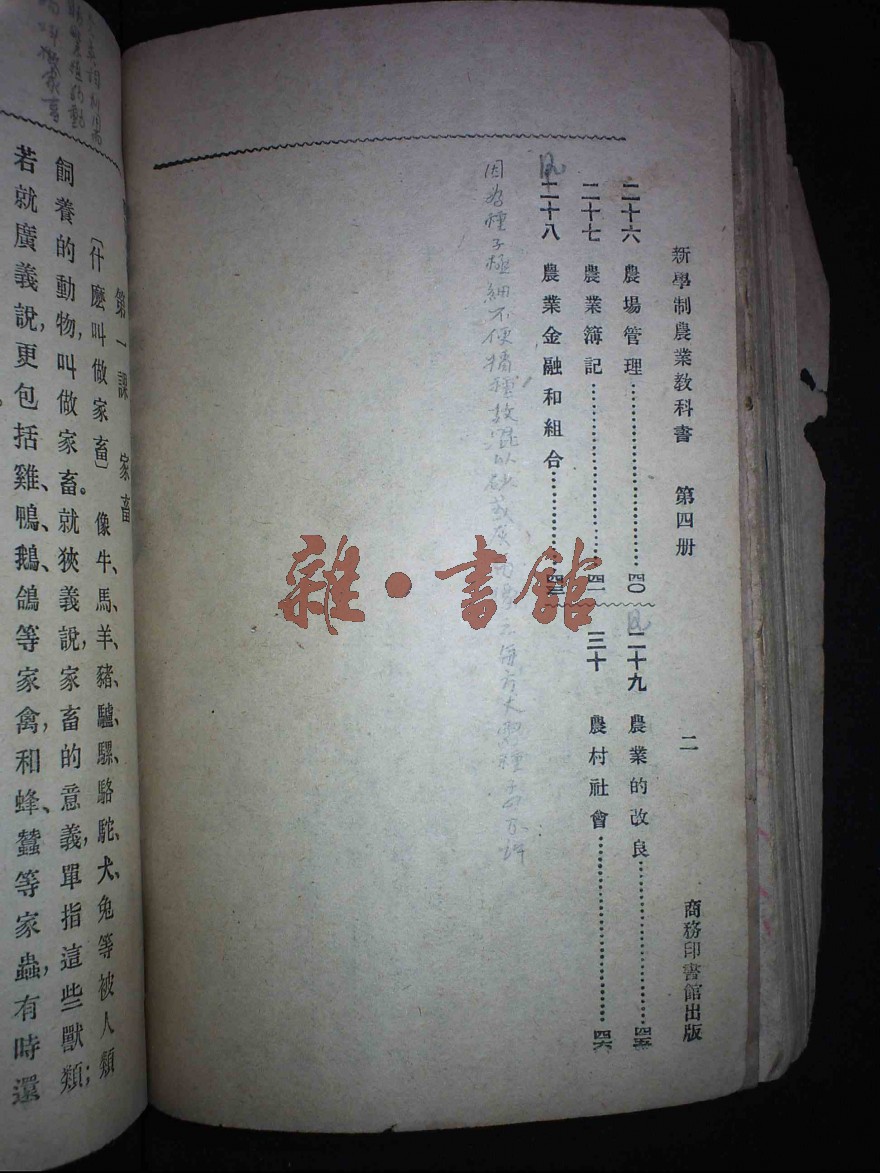 新學制農業教科書 第四册 二 商務印書館出版
二十六 農場管理 四〇
二十七 農業簿記 四一
二十八 農業金融和組合 四三
二十九 農業的改良 四五
三十 農村社會 四六
因為種子極細不便播種故混以砂或灰
每方丈 種子
雜·書館
第一課 家畜
〔什麽叫做家畜〕 像牛、馬、羊、豬、驢、騾、駱駝、犬、兔等被人類
飼養的動物,叫做家畜。就狹義說,家畜的意義,單指這些獸類;
若就廣義說,更包括雞、鴨、鵝、鴿等家禽,和蜂、蠶等家蟲,有時還